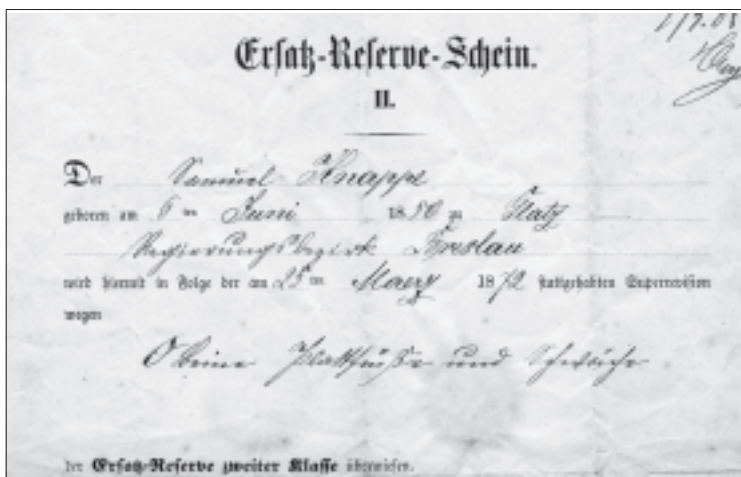 Ersatz-Reserve-Schein.
II.
Der Samuel Knappe
geboren am 6ten Juni 1850 zu Glatz
Regierungsbezirk Breslau
wird hiermit in Folge der am 25ten Maerz 1872 stattgehabten Superrevision
wegen
O Beine Plattfüße und Schwäche
der Ersatz-Reserve zweiter Klasse überwiesen.